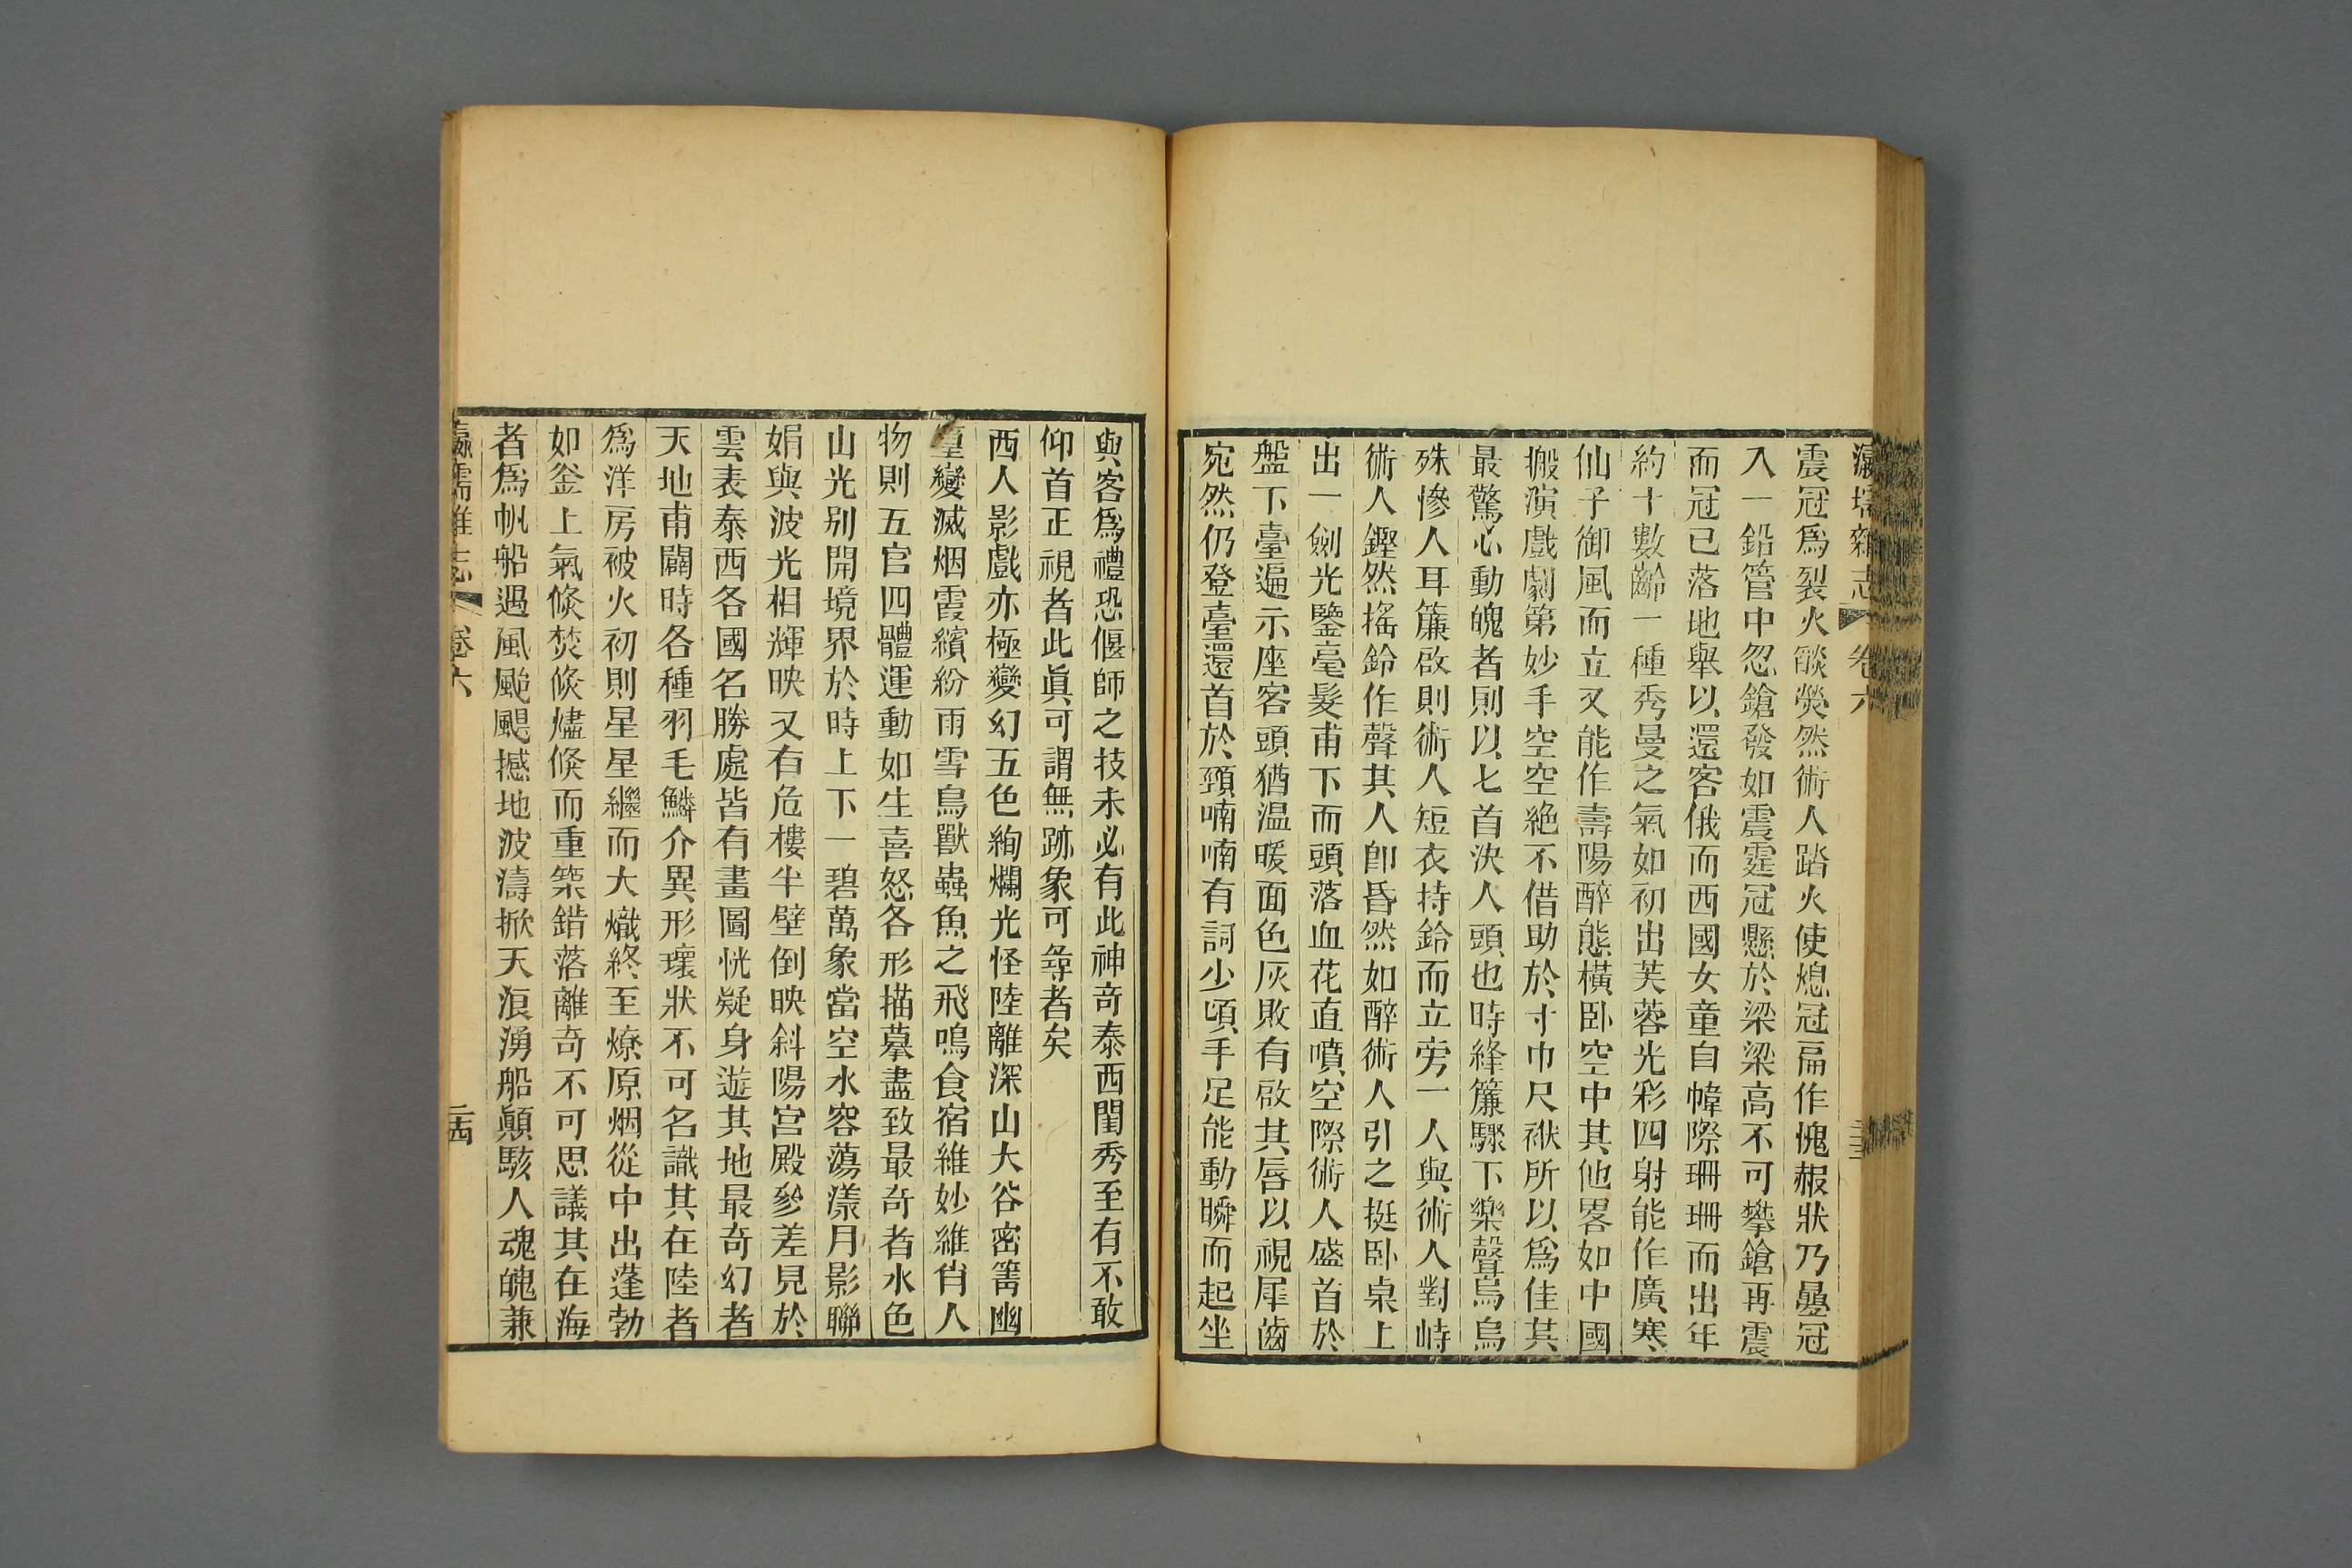 瀛壖雜志 卷六
震冠爲裂火燄熒然術人踏火使熄冠扁作愧赧狀乃疊冠
入一鉛管中忽鎗發如震霆冠懸於梁梁高不可攀鎗再震
而冠已落地舉以還客俄而西國女童自幃際珊珊而出年
約十數齡一種秀曼之氣如初出芙蓉光彩四射能作廣寒
仙子御風而立又能作壽陽醉態橫卧空中其他畧如中國
搬演戲劇第妙手空空絶不借助於寸巾尺袱所以爲佳其
最驚心動魄者則以匕首決人頭也時絳簾驟下樂聲烏烏
殊慘人耳簾啟則術人短衣持鈴而立旁一人與術人對峙
術人鏗然搖鈴作聲其人卽昏然如醉術人引之挺卧桌上
出一劍光鑒毫髮甫下而頭落血花直噴空際術人盛首於
盤下臺遍示座客頭猶温暖面色灰敗有啟其唇以視犀齒
宛然仍登臺還首於頸喃喃有詞少頃手足能動瞬而起坐
與客爲禮恐偃師之技未必有此神奇泰西閨秀至有不敢
仰首正視者此眞可謂無跡象可尋者矣
西人影戲亦極變幻五色絢爛光怪陸離深山大谷密箐幽
篁變滅烟霞繽紛雨雪鳥獸蟲魚之飛鳴食宿維妙維肖人
物則五官四體運動如生喜怒各形描摹盡致最奇者水色
山光别開境界於時上下一碧萬象當空水容蕩漾月影聯
娟與波光相輝映又有危樓半壁倒映斜陽宫殿參差見於
雲表泰西各國名勝處皆有畫圖恍疑身遊其地最奇幻者
天地甫闢時各種羽毛鱗介異形瓌狀不可名識其在陸者
爲洋房被火初則星星繼而大熾終至燎原烟從中出蓬勃
如釜上氣倏焚倏燼倏而重築錯落離奇不可思議其在海
者爲帆船遇風颱颶撼地波濤掀天浪湧船顛駭人魂魄兼
瀛壖雜志 卷六 二十四